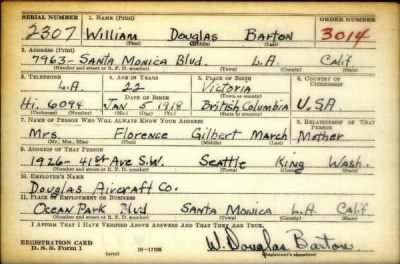 SERIAL NUMBER 1. NAME (Print) ORDER NUMBER
2307 William Douglas Barton 3014
(First) (Middle) (Last)
2. ADDRESS (Print)
7963- Santa Monica Blvd. L.A. Calif.
(Number and street or R. F. D. number) (Town) (County) (State)
3. TELEPHONE 4. AGE IN YEARS 5. PLACE OF BIRTH 6. COUNTRY OF CITIZENSHIP
L.A. 22 Victoria
DATE OF BIRTH (Town or county)
Hi. 6094 Jan 5 1918 British Columbia U.S.A.
(Exchange) (Number) (Mo.) (Day) (Yr.) (State or country)
7. NAME OF PERSON WHO WILL ALWAYS KNOW YOUR ADDRESS 8. RELATIONSHIP OF THAT PERSON
Mrs. Florence Gilbert March Mother
(Mr., Mrs., Miss) (First) (Middle) (Last)
9. ADDRESS OF THAT PERSON
1926- 41st Ave S.W. Seattle King Wash.
(Number and street or R. F. D. number) (Town) (County) (State)
10. EMPLOYER'S NAME
Douglas Aircraft Co.
11. PLACE OF EMPLOYMENT OR BUSINESS
Ocean Park Blvd Santa Monica L.A. Calif.
(Number and street or R. F. D. number) (Town) (County) (State)
I AFFIRM THAT I HAVE VERIFIED ABOVE ANSWERS AND THAT THEY ARE TRUE.
REGISTRATION CARD
D. S. S. Form 1 (over) W. Douglas Barton
(Registrant's signature)